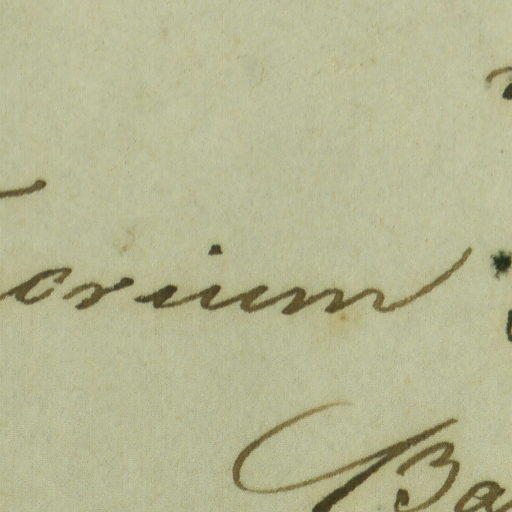 orium
Ba